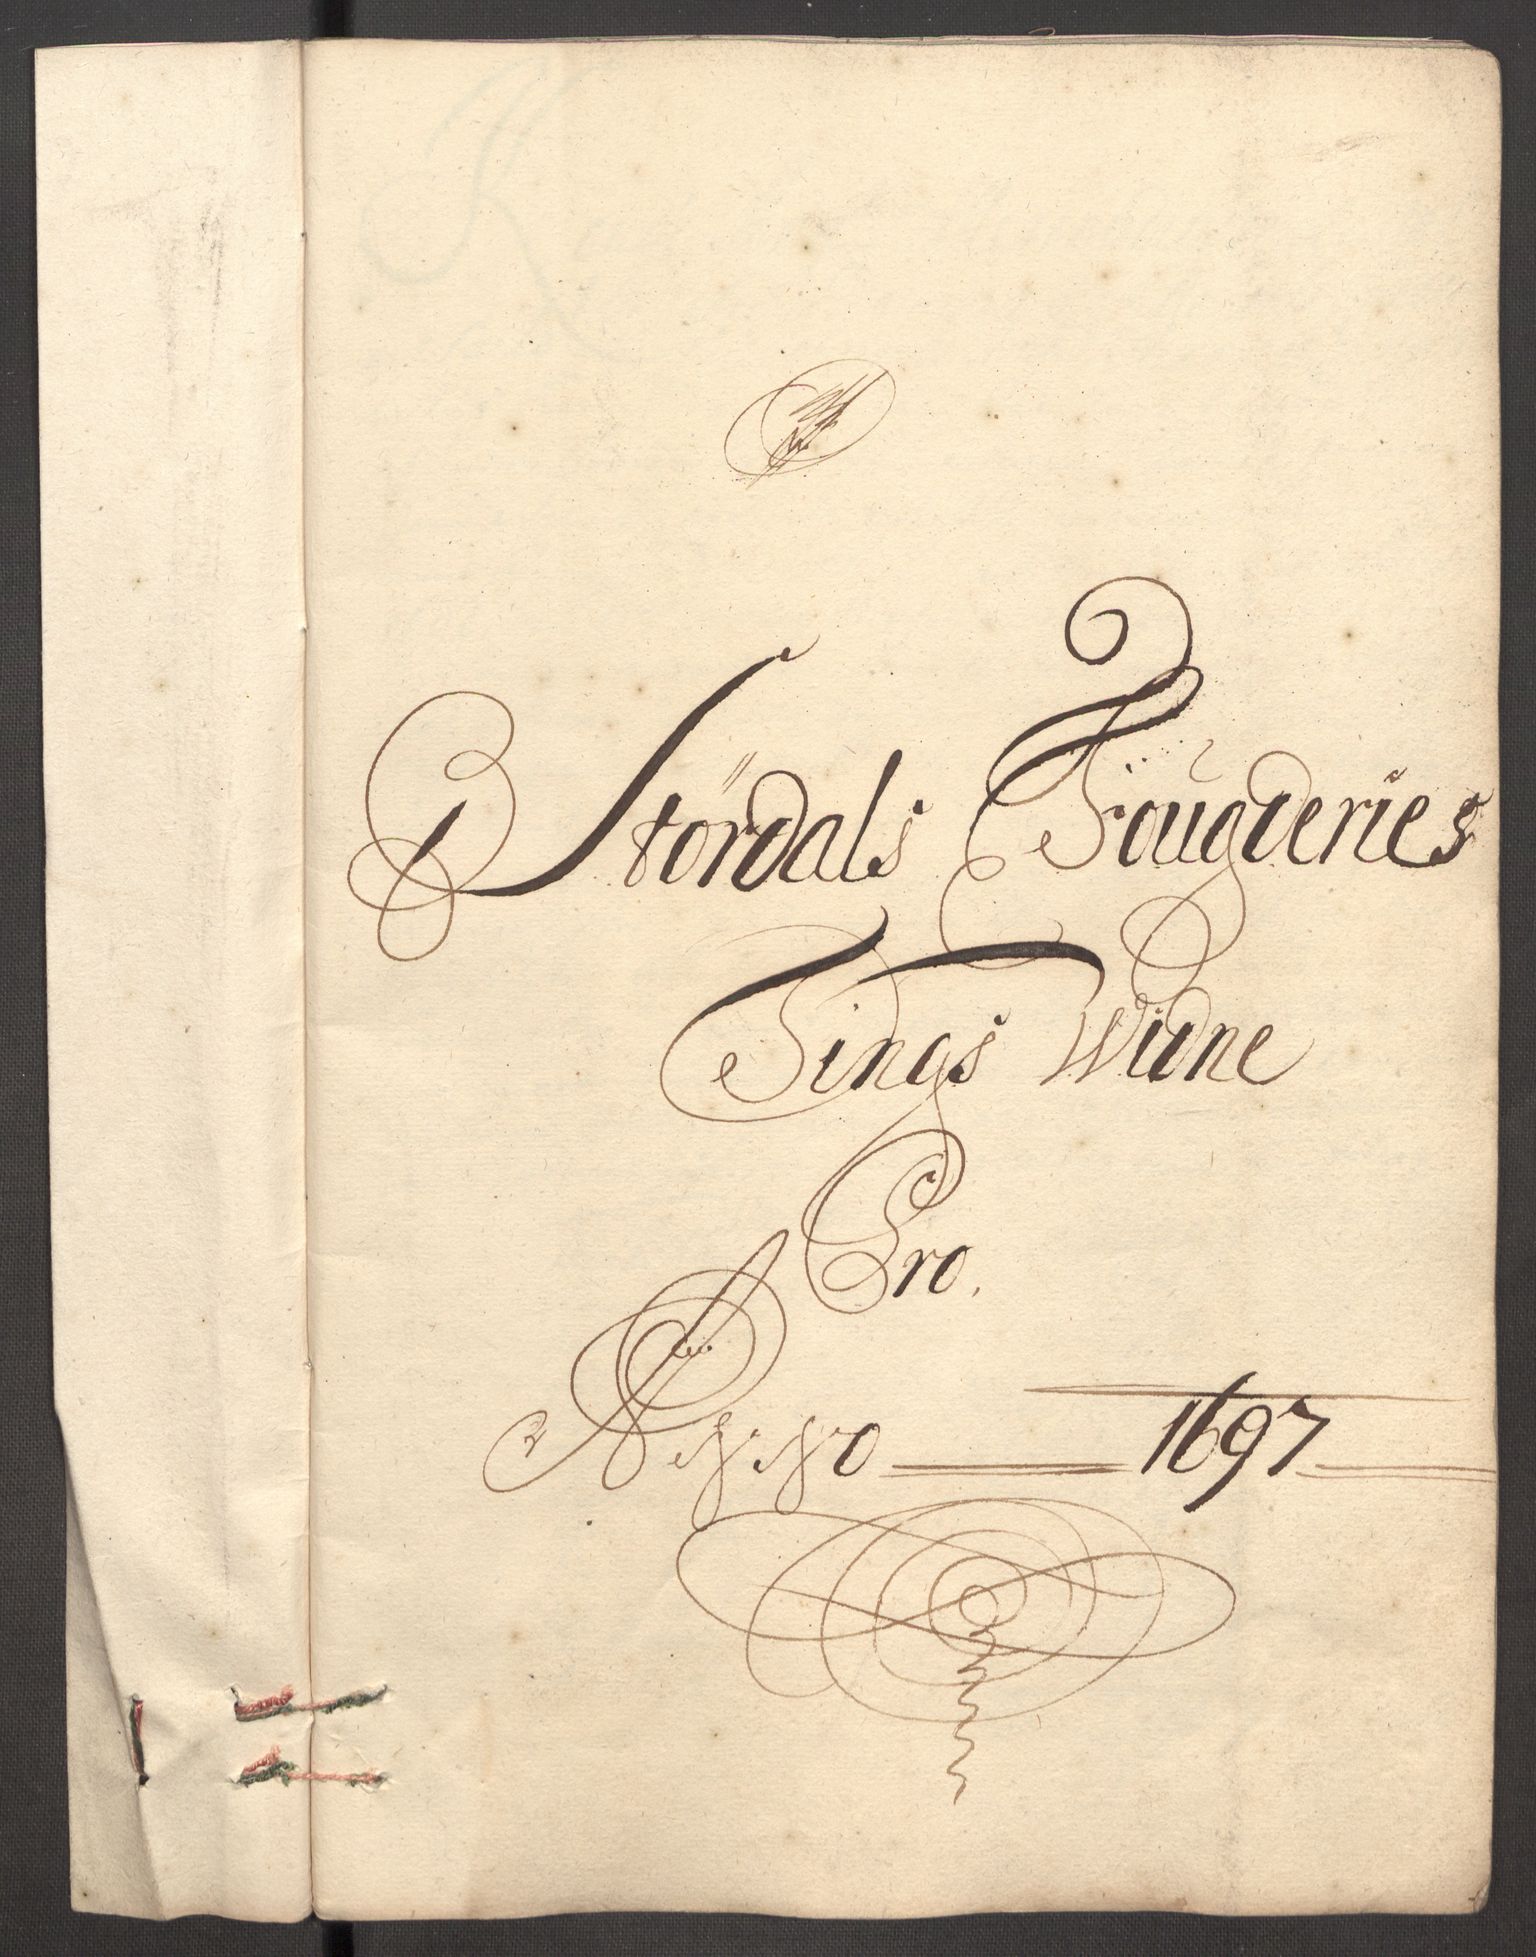 Stördals Fougderies
Tings Widne
Pro.
Anno 1697